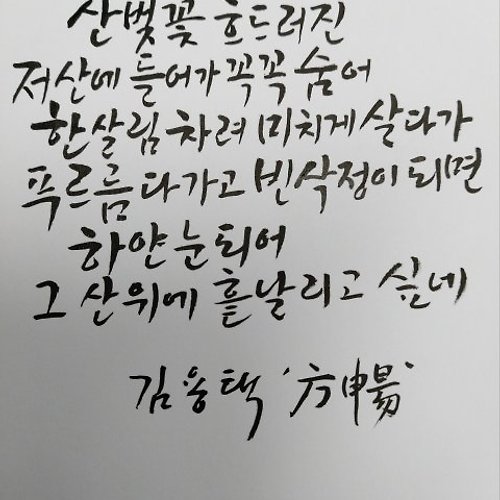 산벚꽃 흐드러진
저 산에 들어가 꼭꼭 숨어
한 살림 차려 미치게 살다가
푸르름 다 가고 빈 삭정이 되면
하얀 눈 되어
그 산 위에 흩날리고 싶네
김용택 '方暢'